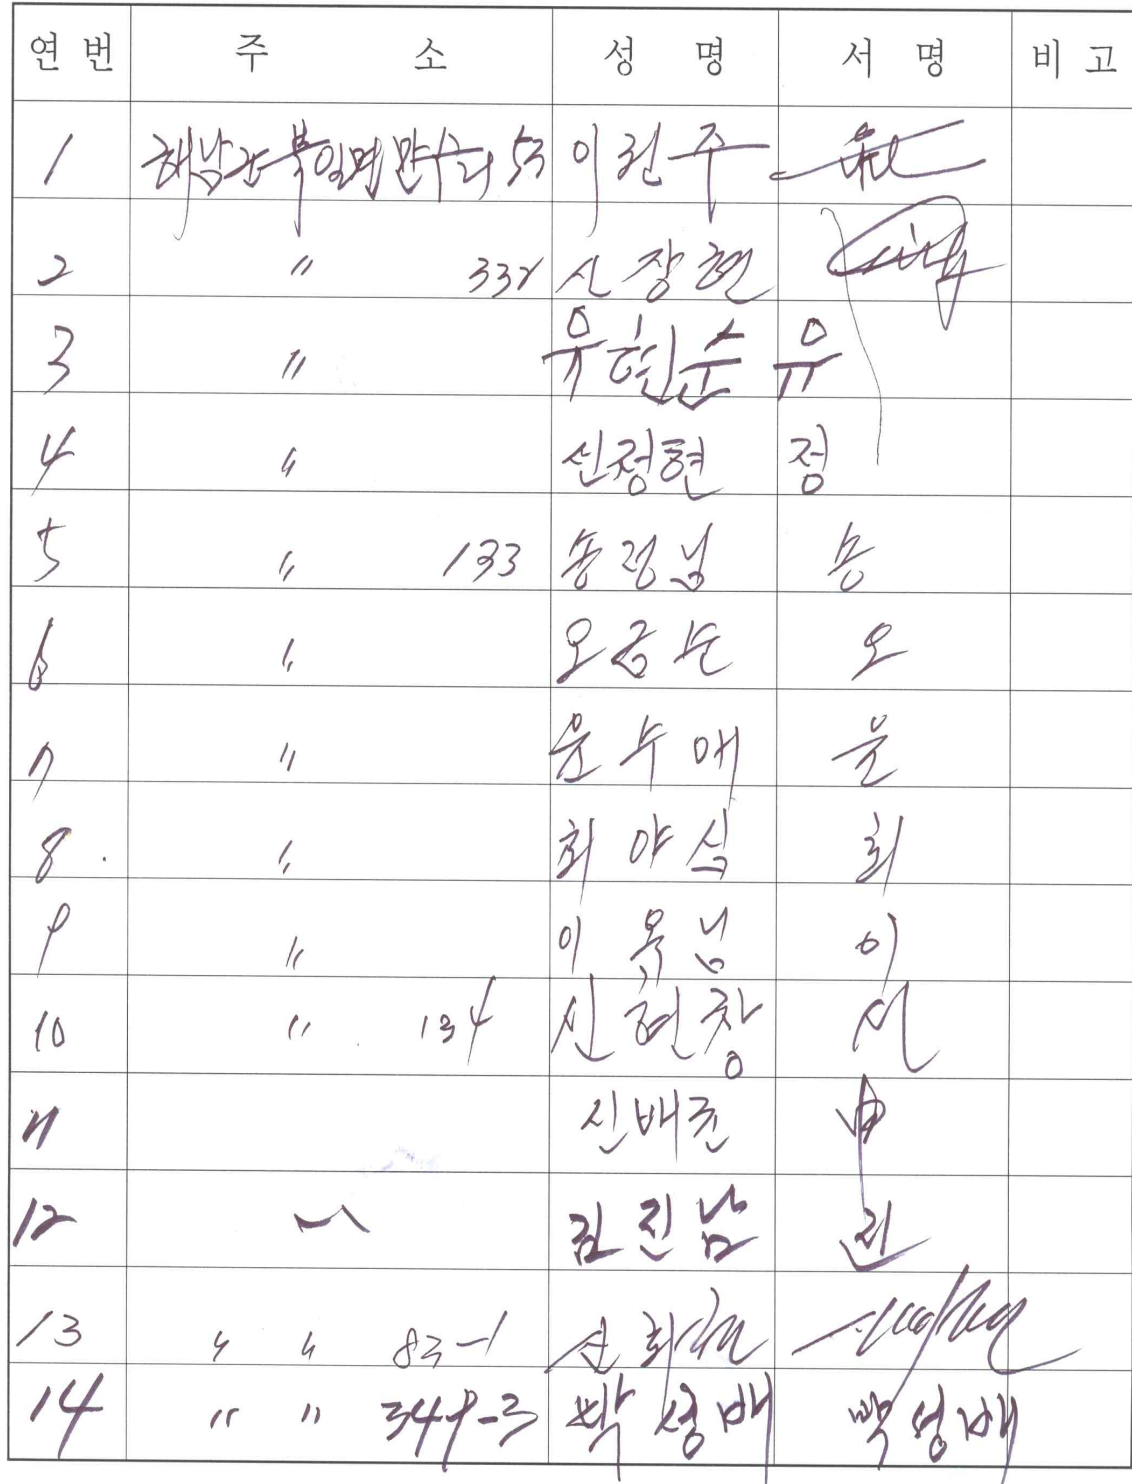 연번 주 소 성 명 서 명 비고
1 해남군 북일면 만수리 53 이권주
2 〃 332 신장현
3 〃 유현순 유
4 〃 신정현 정
5 〃 133 송정님 송
6 〃 오금순 오
7 〃 윤수애 윤
8 〃 최야식 최
9 〃 이옥님 이
10 〃 134 신현창 신
11 신배균 申
12 〃 김진남 진
13 〃 〃 83-1
14 〃 〃 349-3 박성배 박성배